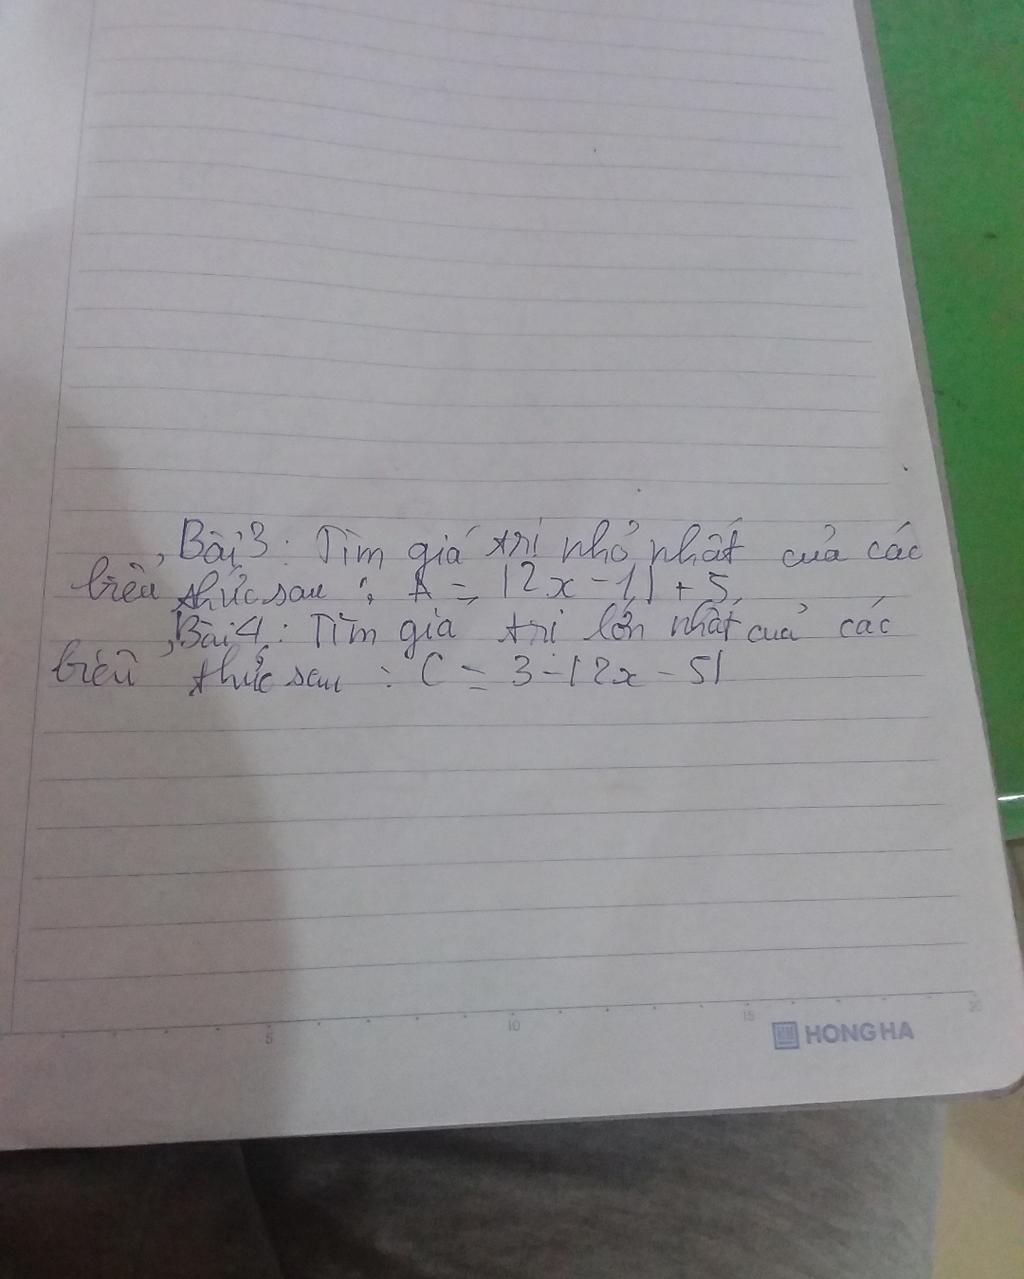 Bài 3 : Tìm giá trị nhỏ nhất của các
biểu thức sau : A = |2x - 1| + 5
Bài 4 : Tìm giá trị lớn nhất của các
biểu thức sau : C = 3 - |2x - 5|
5 10 15 20
HONG HA